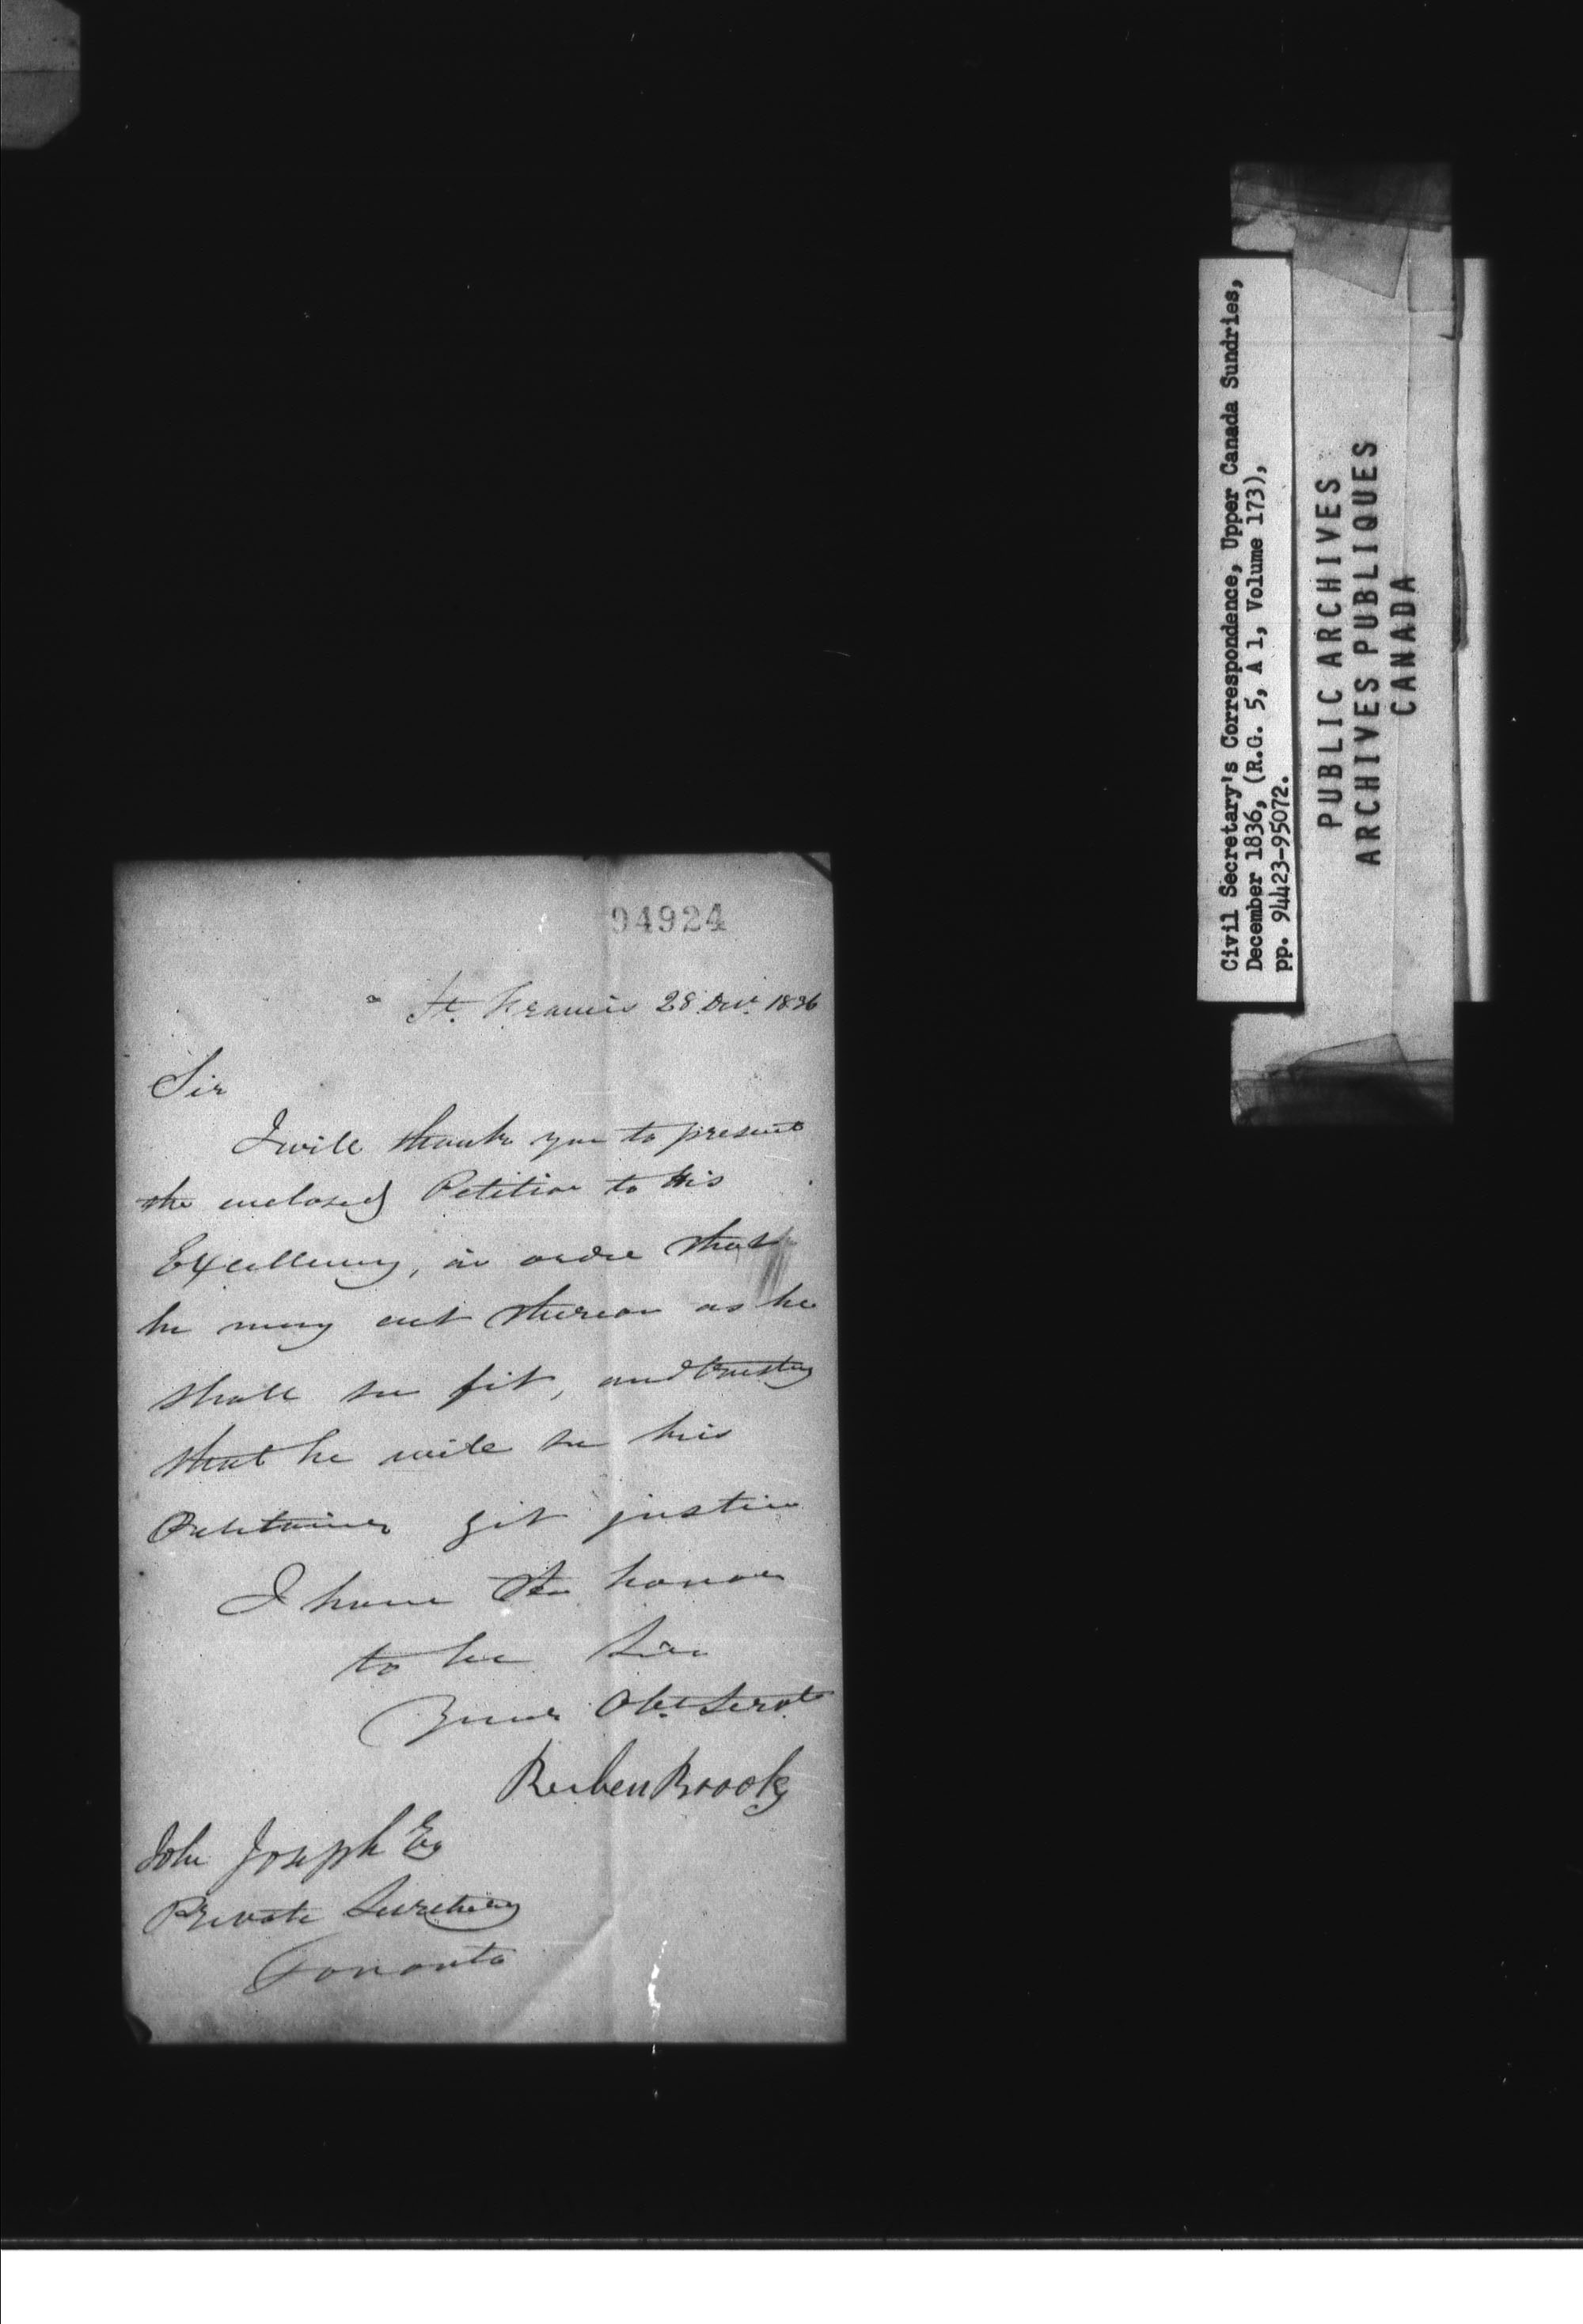 94924
St. Francis 28 Decr. 1836
Sir
I will thank you to present
the enclosed Petition to His
Excellency, in order that
he may act thereon as he
shall see fit, and trusting
that he will see his
Petitioner git justice
I have the honour
to be Sir
Your Obt. Servt.
Reuben Brooks
John Joseph Esq
Private Secretary
Toronto
Civil Secretary's Correspondence, Upper Canada Sundries,
December 1836, (R.G. 5, A 1, Volume 173),
pp. 94423-95072.
PUBLIC ARCHIVES
ARCHIVES PUBLIQUES
CANADA